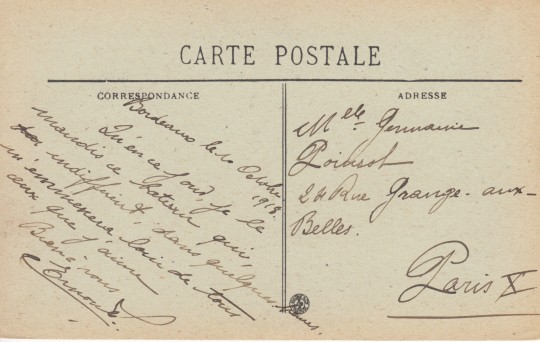 CARTE POSTALE
CORRESPONDANCE
ADRESSE
Bordeaux le 10 Octobre
1918.
Qu'en ce jour, je le
maudis ce bateau qui,
indifférent, dans quelques heures,
m'emmènera loin de tous
ceux que j'aime
Bien à vous
Melle Germaine
Poinsot
24 Rue Grange-aux-
Belles.
Paris X